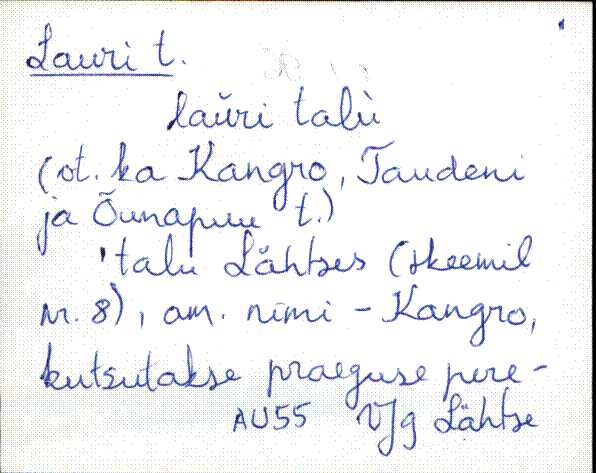 Lauri t.
laŭri talù
(vt. ka Kangro, Taudeni
ja Õunapuu t.)
'talu Lähtses (skeemil
nr. 8), am. nimi - Kangro,
kutsutakse praeguse pere-
AU55 VJg Lähtse